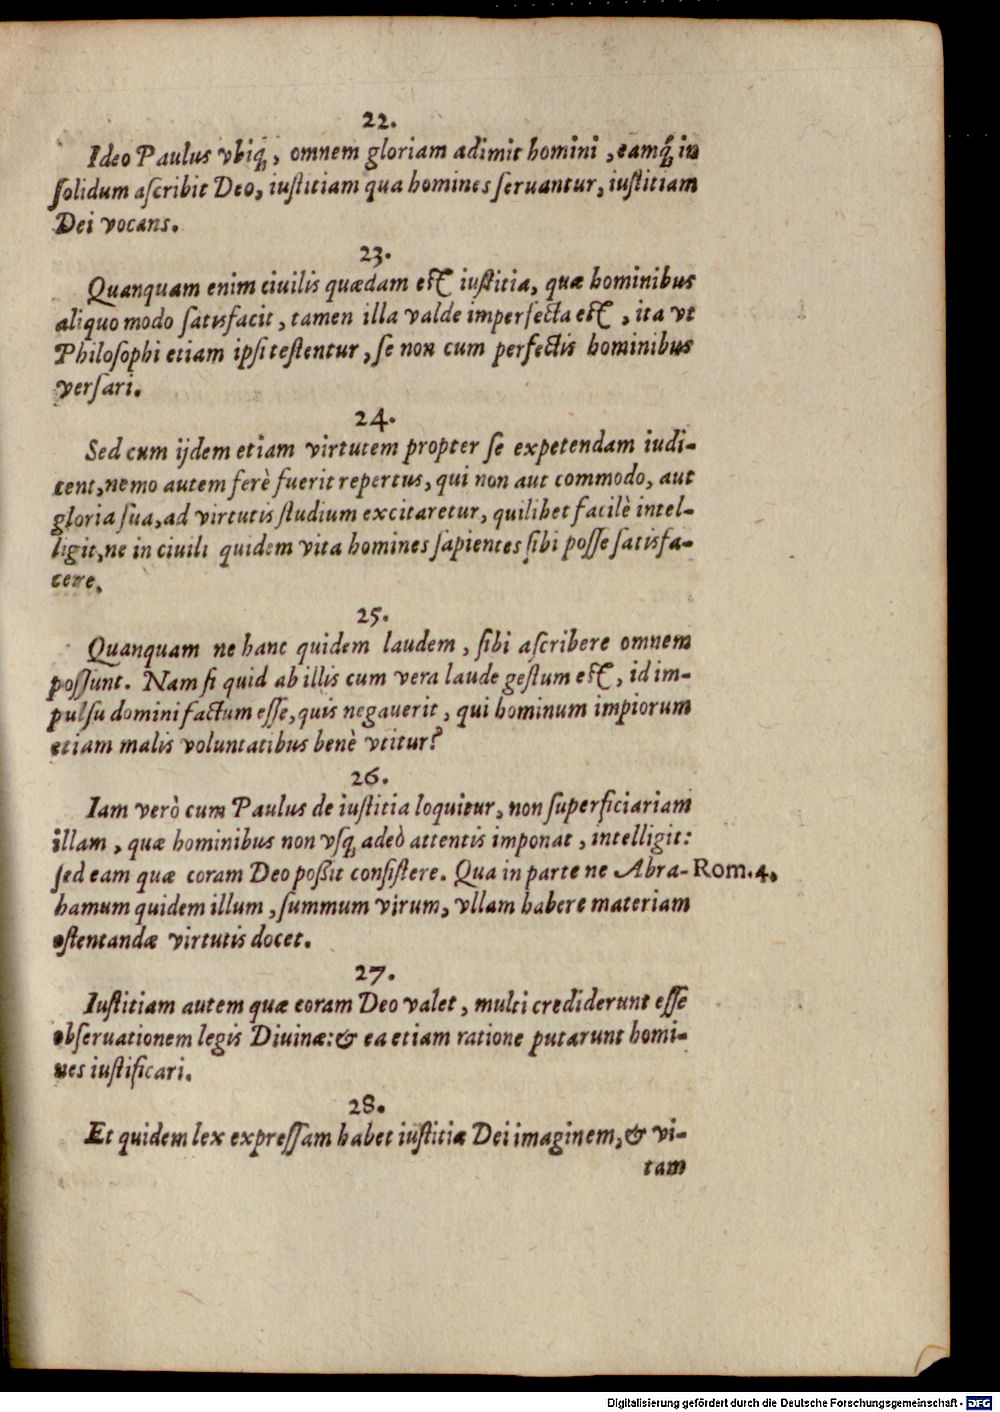 22.
Ideo Paulus vbiq́;, omnem gloriam adimit homini, eamq́; in
solidum aſcribit Deo, iuſtitiam qua homines ſeruantur, iuſtitiam
Dei vocans.
23.
Quanquam enim ciuilis quædam eſt iuſtitia, quæ hominibus
aliquo modo ſatisfacit, tamen illa valde imperfecta eſt, ita vt
Philoſophi etiam ipſi teſtentur, ſe non cum perfectis hominibus
verſari.
24.
Sed cum ijdem etiam virtutem propter ſe expetendam iudi-
cent, nemo autem ferè fuerit repertus, qui non aut commodo, aut
gloria ſua, ad virtutis ſtudium excitaretur, quilibet facilè intel-
ligit, ne in ciuili quidem vita homines ſapientes ſibi poſſe ſatisfa-
cere.
25.
Quanquam ne hanc quidem laudem, ſibi aſcribere omnem
poſſunt. Nam ſi quid ab illis cum vera laude geſtum eſt, id im-
pulſu domini factum eſſe, quis negauerit, qui hominum impiorum
etiam malis voluntatibus benè vtitur?
26.
Iam verò cum Paulus de iuſtitia loquitur, non ſuperficiariam
illam, quæ hominibus non vſq; adeò attentis imponat, intelligit:
ſed eam quæ coram Deo poßit conſiſtere. Qua in parte ne Abra- Rom. 4.
hamum quidem illum, ſummum virum, vllam habere materiam
oſtentandæ virtutis docet.
27.
Iuſtitiam autem quæ coram Deo valet, multi crediderunt eſſe
obſeruationem legis Diuinæ: & ea etiam ratione putarunt homi-
nes iuſtificari.
28.
Et quidem lex expreſſam habet iuſtitiæ Dei imaginem, & vi-
tam
Digitalisierung gefördert durch die Deutsche Forschungsgemeinschaft - DFG